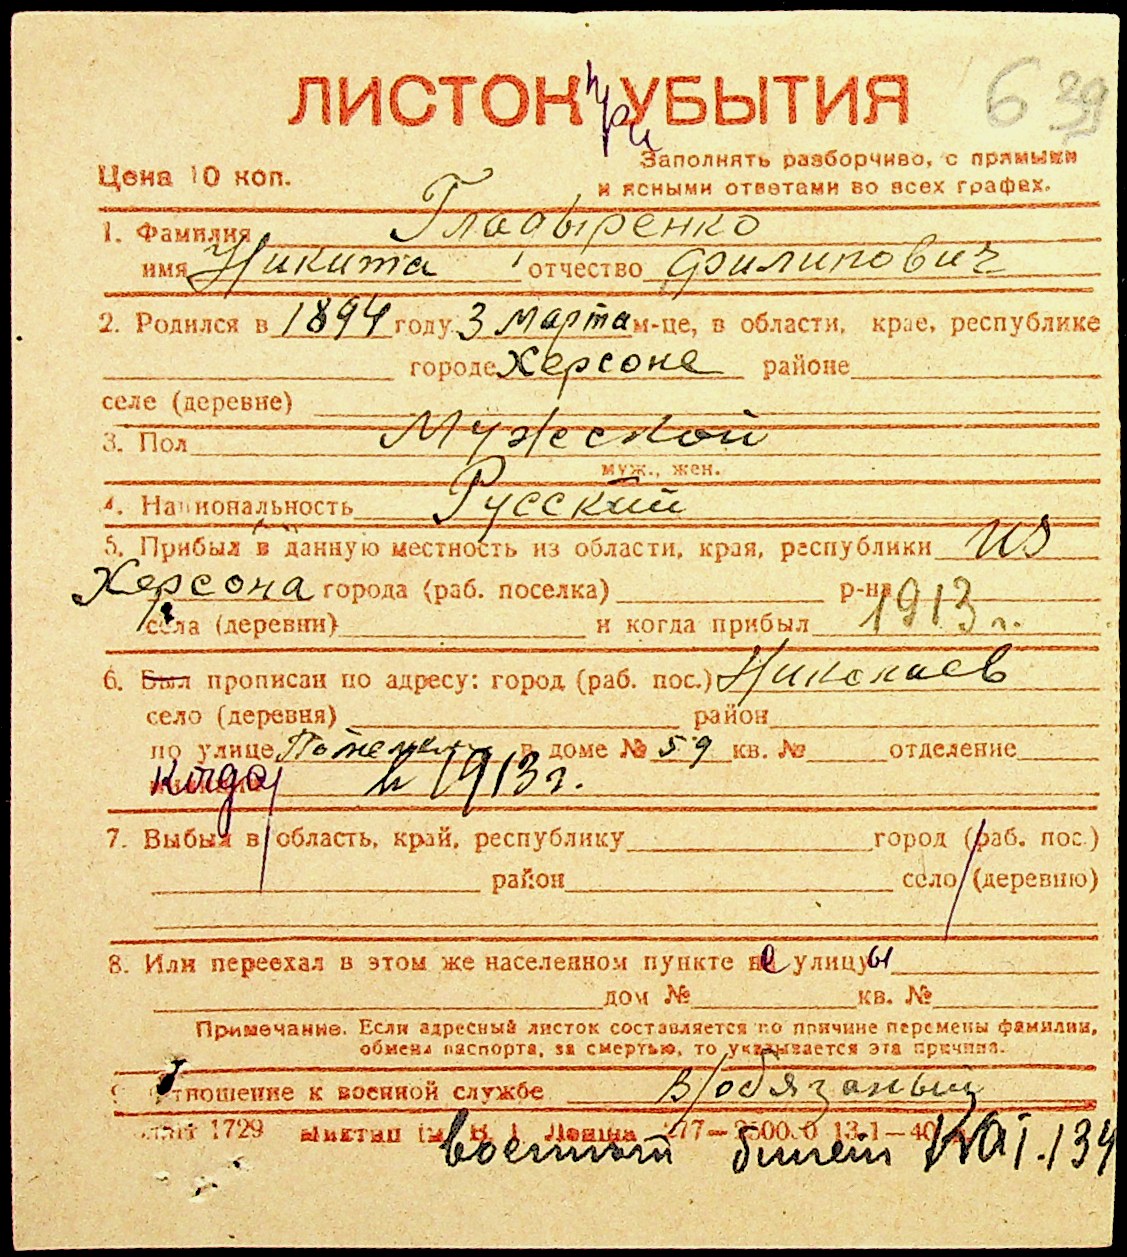 ЛИСТОК при УБЫТИЯ 6 39
Цена 10 коп.
Заполнять разборчиво, с прямыми
и ясными ответами во всех графах.
1. Фамилия Гладыренко
имя Никита отчество Филипович
2. Родился в 1894 году 3 марта м-це, в области, крае, республике
городе Херсоне районе
селе (деревне)
3. Пол Мужской
муж., жен.
4. Национальность Русский
5. Прибыл в данную местность из области, края, республики из
Херсона города (раб. поселка) р-на
села (деревни) и когда прибыл 1913 г.
6. Был прописан по адресу: город (раб. пос.) Николаев
село (деревня) район
по улице в доме № 59 кв. № отделение
когда в 1913 г.
7. Выбыл в область, край, республику город (раб. пос.)
район село (деревню)
8. Или переехал в этом же населенном пункте не улицы
дом № кв. №
Примечание. Если адресный листок составляется по причине перемены фамилии,
обмена паспорта, за смертью, то указывается эта причина.
Отношение к военной службе в/обязаный
1729 Ленина 277— 13.1—40
военный билет 134